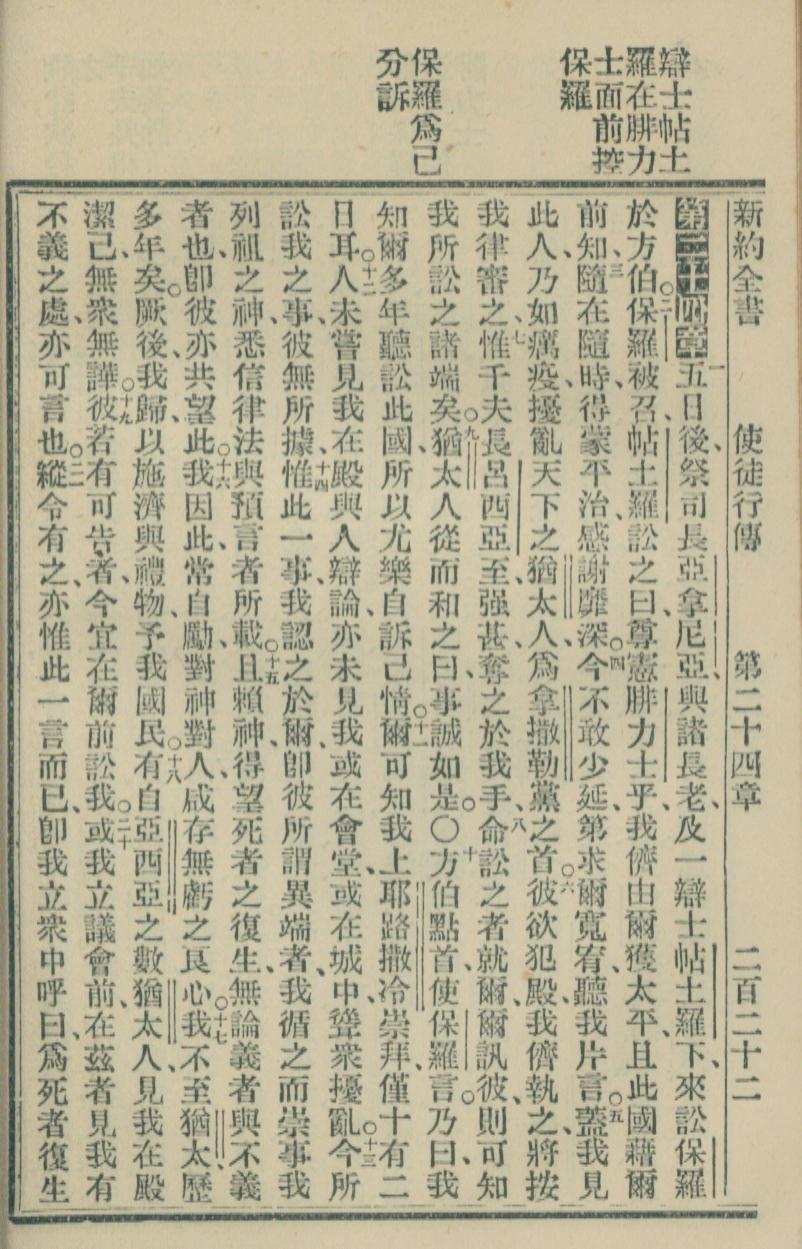 辯士帖土
羅在腓力
士面前控
保羅
保羅爲己
分訴
新約全書 使徒行傳 第二十四章 二百二十二
第二十四章一五日後、祭司長亞拿尼亞、與諸長老、及一辯士帖土羅下來、訟保羅
於方伯。○二保羅被召、帖土羅訟之曰、尊憲腓力士乎、我儕由爾獲太平、且此國藉爾
前知、三隨在隨時、得蒙平治、感謝靡深、○四今不敢少延、第求爾寬宥、聽我片言。○五蓋我見
此人乃如癘疫、擾亂天下之猶太人、爲拿撒勒黨之首、○六彼欲犯殿、我儕執之、將按
我律審之、七惟千夫長呂西亞至、强甚、奪之於我手、八命訟之者就爾、爾訊彼、則可知
我所訟之諸端矣。○九猶太人從而和之曰、事誠如是。○十方伯點首、使保羅言。乃曰、我
知爾多年聽訟此國、所以尤樂自訴己情、○十一爾可知我上耶路撒冷崇拜、僅十有二
日耳、○十二人未嘗見我在殿與人辯論、亦未見我或在會堂、或在城中、聳衆擾亂、○十三今所
訟我之事、彼無所據、十四惟此一事、我認之於爾、卽彼所謂異端者、我循之而崇事我
列祖之神、悉信律法與預言者所載、○十五且賴神、得望死者之復生、無論義者與不義
者也、卽彼亦共望此、○十六我因此、常自勵、對神對人、咸存無虧之良心、○十七我不至猶太、歷
多年矣。厥後、我歸以施濟與禮物、予我國民、○十八有自亞西亞之數猶太人、見我在殿
潔己、無衆無譁、○十九彼若有可告者、今宜在爾前訟我、○二十或我立議會前、在茲者見我有
不義之處、亦可言也、○二一縱令有之、亦惟此一言而已、卽我立衆中呼曰、爲死者復生